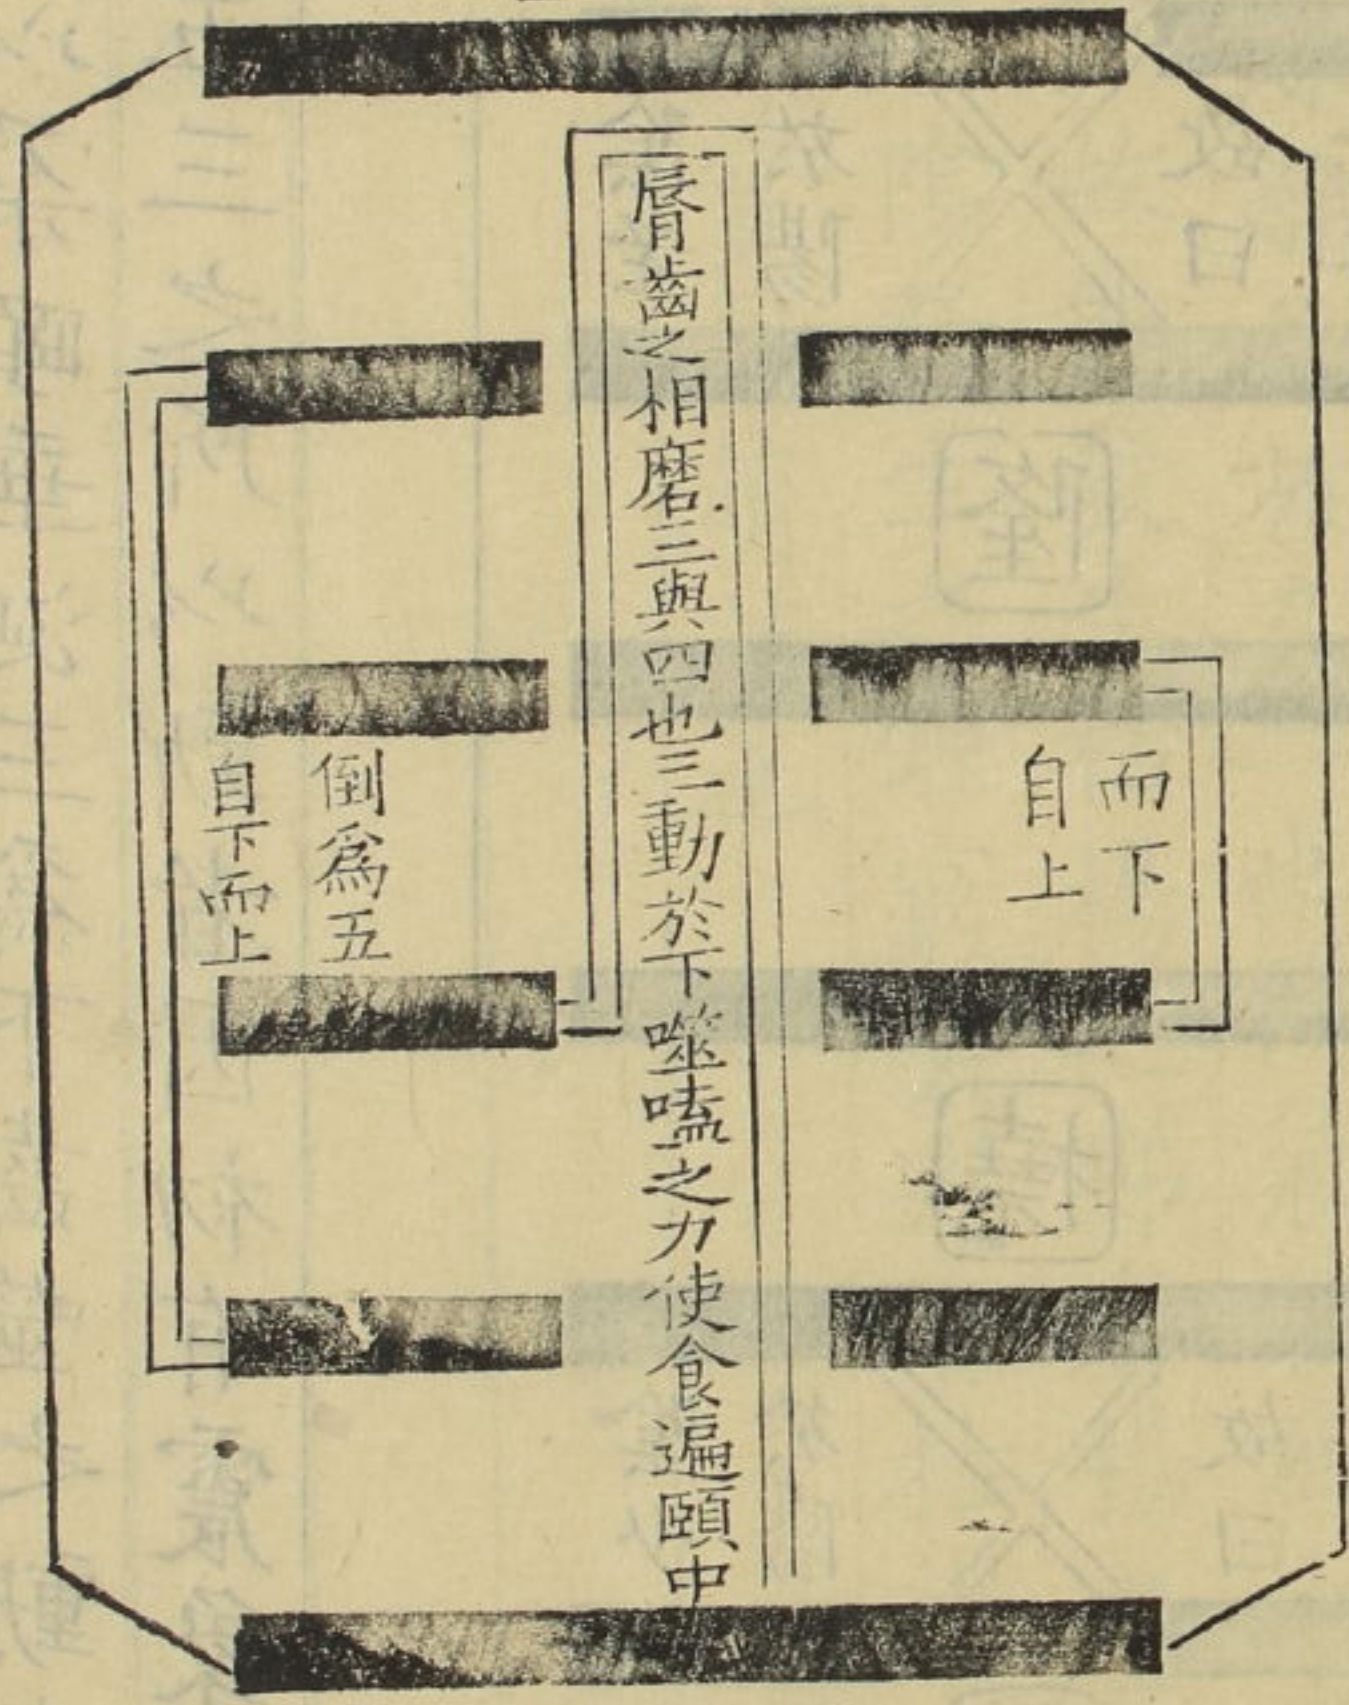 而下
自上
脣齒之相磨三與四也三動於下噬嗑之力使食遍頤中
倒爲五
自下而上